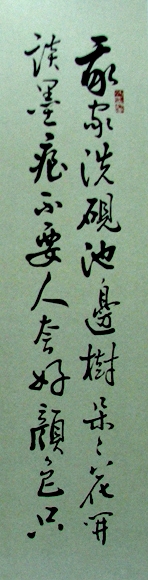 我家洗硯池邊樹朵〻花開
淡墨痕不要人夸好顔色只